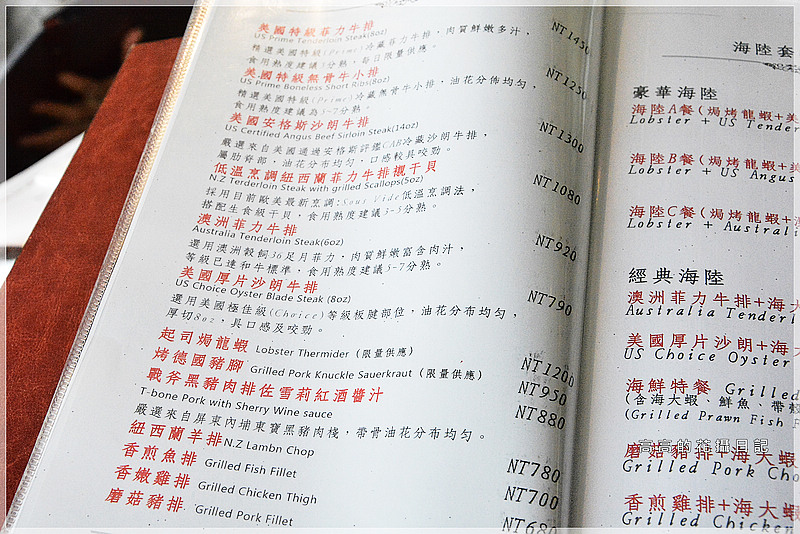 美國特級菲力牛排
US Prime Tenderloin Steak(8oz) NT1450
精選美國特級(Prime)冷藏菲力牛排，肉質鮮嫩多汁，
食用熟度建議3分熟，每日限量供應。
美國特級無骨牛小排
US Prime Boneless Short Ribs(8oz) NT1250
精選美國特級(Prime)冷藏無骨牛小排，油花分佈均勻，
食用熟度建議為5-7分熟。
美國安格斯沙朗牛排
US Certified Angus Beef Sirloin Steak(14oz) NT1300
嚴選來自美國通過安格斯評鑑CAB冷藏沙朗牛排，
屬肋脊部，油花分布均勻，口感較具咬勁。
低溫烹調紐西蘭菲力牛排襯干貝
N.Z Terderloin Steak with grilled Scallops(5oz) NT1080
採用目前歐美最新烹調:Sous Vide低溫烹調法，
搭配生食級干貝，食用熟度建議3-5分熟。
澳洲菲力牛排
Australia Tenderloin Steak(6oz) NT920
選用澳洲穀飼36足月菲力，肉質鮮嫩富含肉汁，
等級已達和牛標準，食用熟度建議5-7分熟。
美國厚片沙朗牛排
US Choice Oyster Blade Steak (8oz) NT790
選用美國極佳級(Choice)等級板腱部位，油花分布均勻，
厚切8oz，具口感及咬勁。
起司焗龍蝦 Lobster Thermider (限量供應) NT1200
烤德國豬腳 Grilled Pork Knuckle Sauerkraut (限量供應) NT950
戰斧黑豬肉排佐雪莉紅酒醬汁 NT880
T-bone Pork with Sherry Wine sauce
嚴選來自屏東內埔東寶黑豬肉棧，帶骨油花分布均勻。
紐西蘭羊排N.Z Lambn Chop NT780
香煎魚排 Grilled Fish Fillet NT700
香嫩雞排 Grilled Chicken Thigh NT680
磨菇豬排 Grilled Pork Fillet
海陸套
豪華海陸
海陸A餐(焗烤龍蝦+美
Lobster + US Tender
海陸B餐(焗烤龍蝦+美
Lobster + US Angus
海陸C餐(焗烤龍蝦+澳
Lobster + Australi
經典海陸
澳洲菲力牛排+海大
Australia Tenderl
美國厚片沙朗+海大
US Choice Oyster
海鮮特餐 Grilled
(含海大蝦、鮮魚、帶殼
(Grilled Prawn Fish F
磨菇豬排+海大蝦
Grilled Pork Cho
香煎雞排+海大蝦
Grilled Chicken
高高的茶攝日記